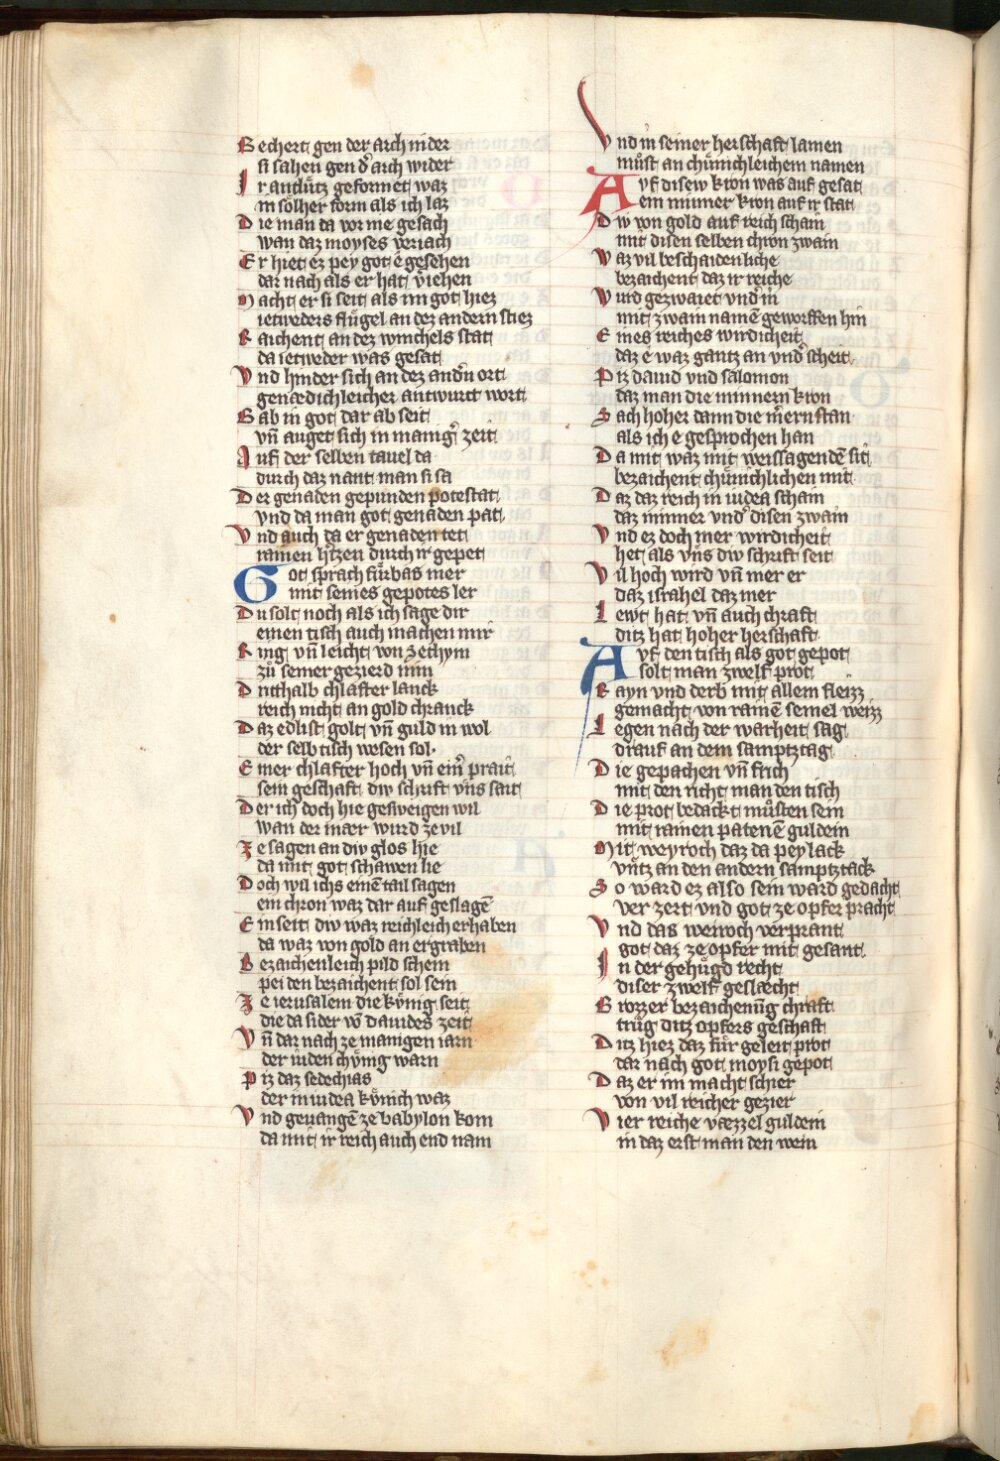 Bechert gen der arch in der
si sahen gen d̾ arch wider
Ir antlütz geformet waz
in sölher form als ich laz
Die man da vor me gesach
wan daz moyses veriach
Er hiet ez pey got e gesehen
dar nach als er hat v̾iehen
Macht er si seit als im got hiez
ietweders flügel an dez andern stiez
Raichent an dez winchels stat
da ietweder was gesat
Vnd hinder sich an dez and̾n ort
genædichleicher antwurt wort
Gab in got dar ab seit
vn̄ auget sich in manig̾ zeit
Auf der selben tauel da
durch daz nant man si sa
Der genaden gepunden potestat
vnd da man got genaden pat
Vnd auch da er genaden tet
ramen hitzen durch ir gepet
Got sprach fürbas mer
mit seines gepotes ler
Du solt noch als ich sage dir
einen tisch auch machen mir
Ring vn̄ leicht von zethym
zu seiner gezierd nim
Dritthalb chlafter lanck
reich nicht an gold chranck
Daz edlist golt vn̄ guld in wol
der selb tisch wesen sol
Einer chlafter hoch vn̄ ein̾ prait
sein geschaft diw schrift vns sait
Der ich doch hie gesweigen wil
wan der mær wurd ze vil
Ze sagen an diy glos hie
da mit got schawen lie
Doch wil ichs eine͂ tail sagen
ein chron waz dar auf geslage͂
Ein seit diw waz reichleich erhaben
da waz von gold an ergraben
Bezaichenleich pild schein
pei den bezaichent sol sein
Ze ierusalem die kynig seit
die da sider vo͂ dauides zeit
Vn̄ dar nach ze manigen iarn
der iuden chynig warn
Piz daz sedechias
der in iudea künich waz
Vnd geuange͂ ze babylon kom
da mit ir reich auch end nam
Vnd in seiner herschaft lamen
müst an chünichleichem namen
Auf disew kron was auf gesat
ein minner kron auf ir stat
Diw von gold auf reich schain
mit disen selben chron zwain
Waz vil beschaidenliche
bezaichent daz ir reiche
Wurd gezwaiet vnd̾ in
mit zwain name͂ geworffen hin
Eines reiches wirdicheit
daz e waz gantz an vnd̾scheit
Piz dauid vnd salomon
daz man die minnern kron
Sach hoher dann die mern stan
als ich e gesprochen han
Da mit waz mit weissagende͂ sit
bezaichent chünichlichen mit
Daz daz reich in iudea schain
daz minner vnd̾ disen zwain
Vnd ez doch mer wirdicheit
het als vns diw schrift seit
Vil hoch wird vn̄ mer er
daz israhel daz mer
Lewt hat vn̄ auch chraft
ditz hat hoher herschaft
Auf den tisch als got gepot
solt man zwelf prot
Rayn vnd derb mit allem fleizz
gemacht von raine͂ semel weizz
Legen nach der warheit sag
drauf an dem samptztag
Die gepachen vn̄ frich
mit den richt man den tisch
Die prot bedackt müsten sein
mit rainen patene͂ guldein
Mit weyroch daz da pey lack
vntz an den andern samptztack
So ward ez also sein ward gedacht
ver zert vnd got ze opfer pracht
Vnd das weiroch verprant
got daz ze opfer mit gesant
In der gehügd recht
diser zwelf geslæcht
Grozzer bezaichenu͂g chraft
trüg ditz opfers geschaft
Ditz hiez daz für geleit prot
dar nach got moysi gepot
Daz er im macht schier
von vil reicher gezier
Vier reiche væzzel guldein
in daz erst man den wein